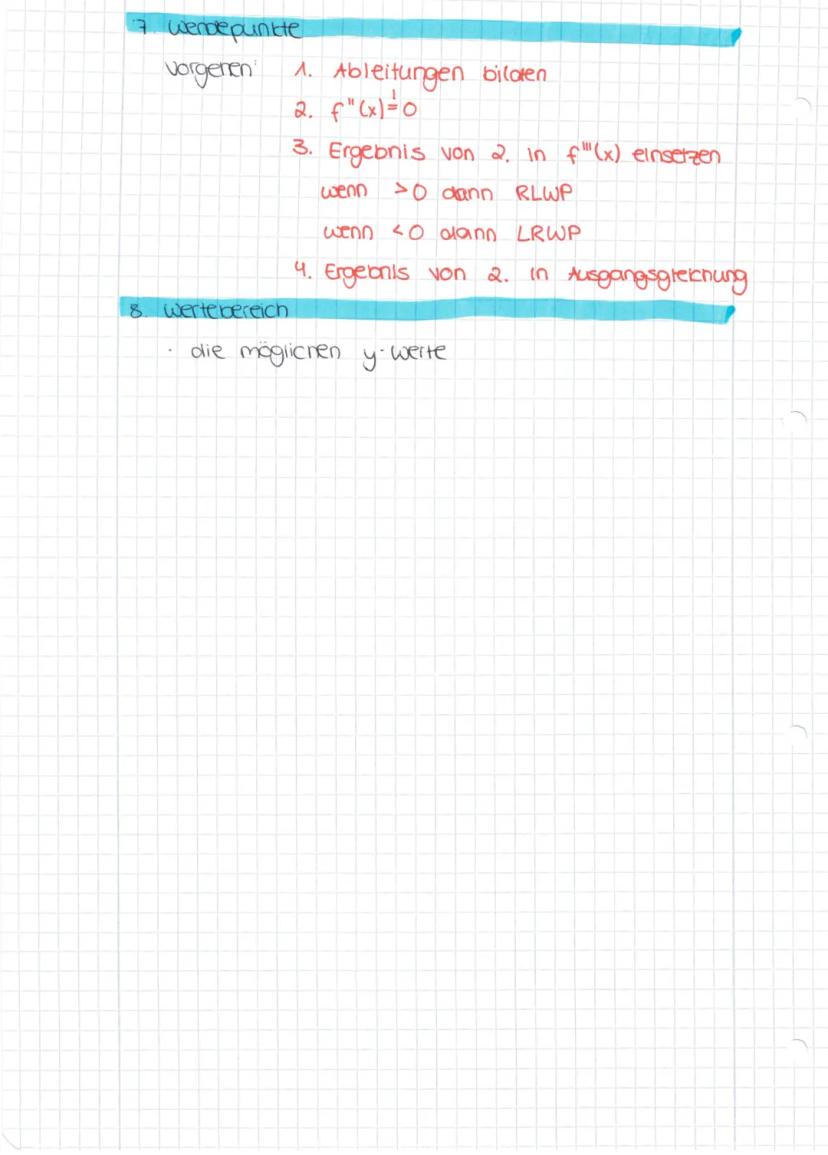 7. Wendepunkte
Vorgehen: 1. Ableitungen bilden
2. f''(x) != 0
3. Ergebnis von 2. in f'''(x) einsetzen
wenn >0 dann RLWP
wenn <0 dann LRWP
4. Ergebnis von 2. in Ausgangsgleichung
8. Wertebereich
· die möglichen y-Werte